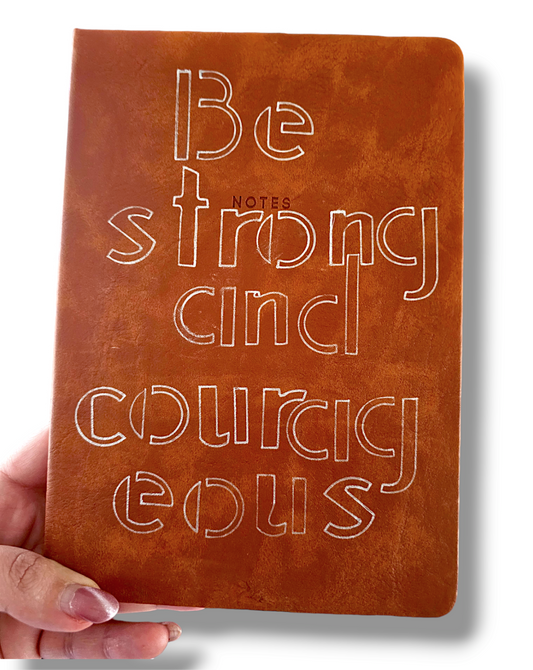 Be
NOTES
strong
and
courag
eous